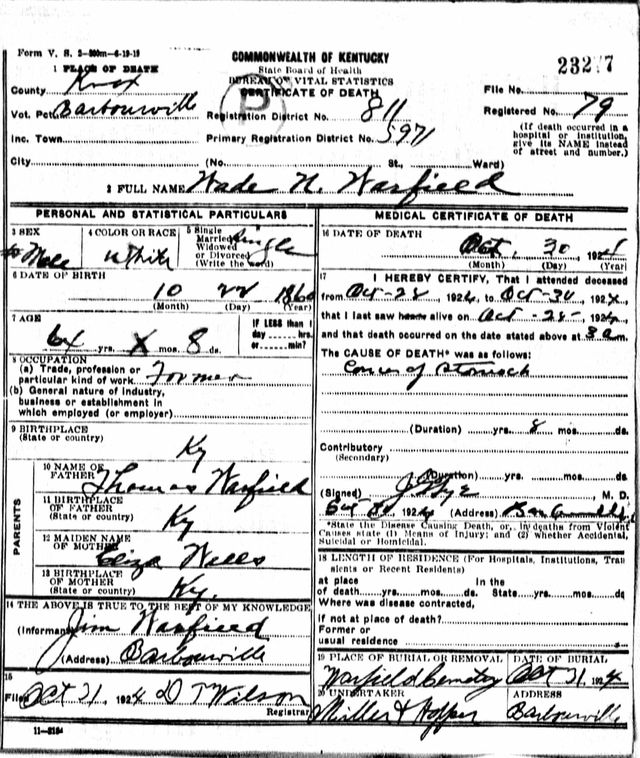 Form V. S. 2-500m-6-19-19
COMMONWEALTH OF KENTUCKY
State Board of Health
BUREAU OF VITAL STATISTICS
CERTIFICATE OF DEATH
23277
1 PLACE OF DEATH
County Knox
File No.
Vot. Pct. Barbourville
Registration District No. 811
Registered No. 79
Inc. Town
Primary Registration District No. 5971
(If death occurred in a hospital or institution, give its NAME instead of street and number.)
City (No. St., Ward)
2 FULL NAME Wade H. Warfield
PERSONAL AND STATISTICAL PARTICULARS
3 SEX Male
4 COLOR OR RACE White
5 Single Married Widowed or Divorced (Write the word) Single
6 DATE OF BIRTH
10 22 1860
(Month) (Day) (Year)
7 AGE
64 yrs. X mos. 8 ds.
IF LESS than 1 day ---- hrs. or ---- min?
8 OCCUPATION
(a) Trade, profession or particular kind of work Farmer
(b) General nature of industry, business or establishment in which employed (or employer)
9 BIRTHPLACE
(State or country) Ky
PARENTS
10 NAME OF FATHER Thomas Warfield
11 BIRTHPLACE OF FATHER
(State or country) Ky
12 MAIDEN NAME OF MOTHER Eliza Wells
13 BIRTHPLACE OF MOTHER
(State or country) Ky.
14 THE ABOVE IS TRUE TO THE BEST OF MY KNOWLEDGE
(Informant) Jim Warfield
(Address) Barbourville
15
Filed Oct 31, 1924 D T Wilson
Registrar
11-3184
MEDICAL CERTIFICATE OF DEATH
16 DATE OF DEATH
Oct, 30, 192
(Month) (Day) (Year)
17 I HEREBY CERTIFY, That I attended deceased
from Oct-28, 1924, to Oct-30, 192
that I last saw h alive on Oct-28-, 192
and that death occurred on the date stated above at 3 am.
The CAUSE OF DEATH* was as follows:
Cancer of Stomach
(Duration) yrs. 8 mos. ds.
Contributory
(Secondary)
(Duration) yrs. mos. ds.
(Signed) M. D.
Oct 192 (Address) Barbourville
*State the Disease Causing Death, or, in deaths from Violent Causes state (1) Means of Injury; and (2) whether Accidental, Suicidal or Homicidal.
18 LENGTH OF RESIDENCE (For Hospitals, Institutions, Transients or Recent Residents)
at place In the
of death yrs. mos. ds. State yrs. mos. ds.
Where was disease contracted,
if not at place of death?
Former or
usual residence
19 PLACE OF BURIAL OR REMOVAL DATE OF BURIAL
Warfield Cemetery Oct 31, 1924
20 UNDERTAKER ADDRESS
Miller & Hopper Barbourville